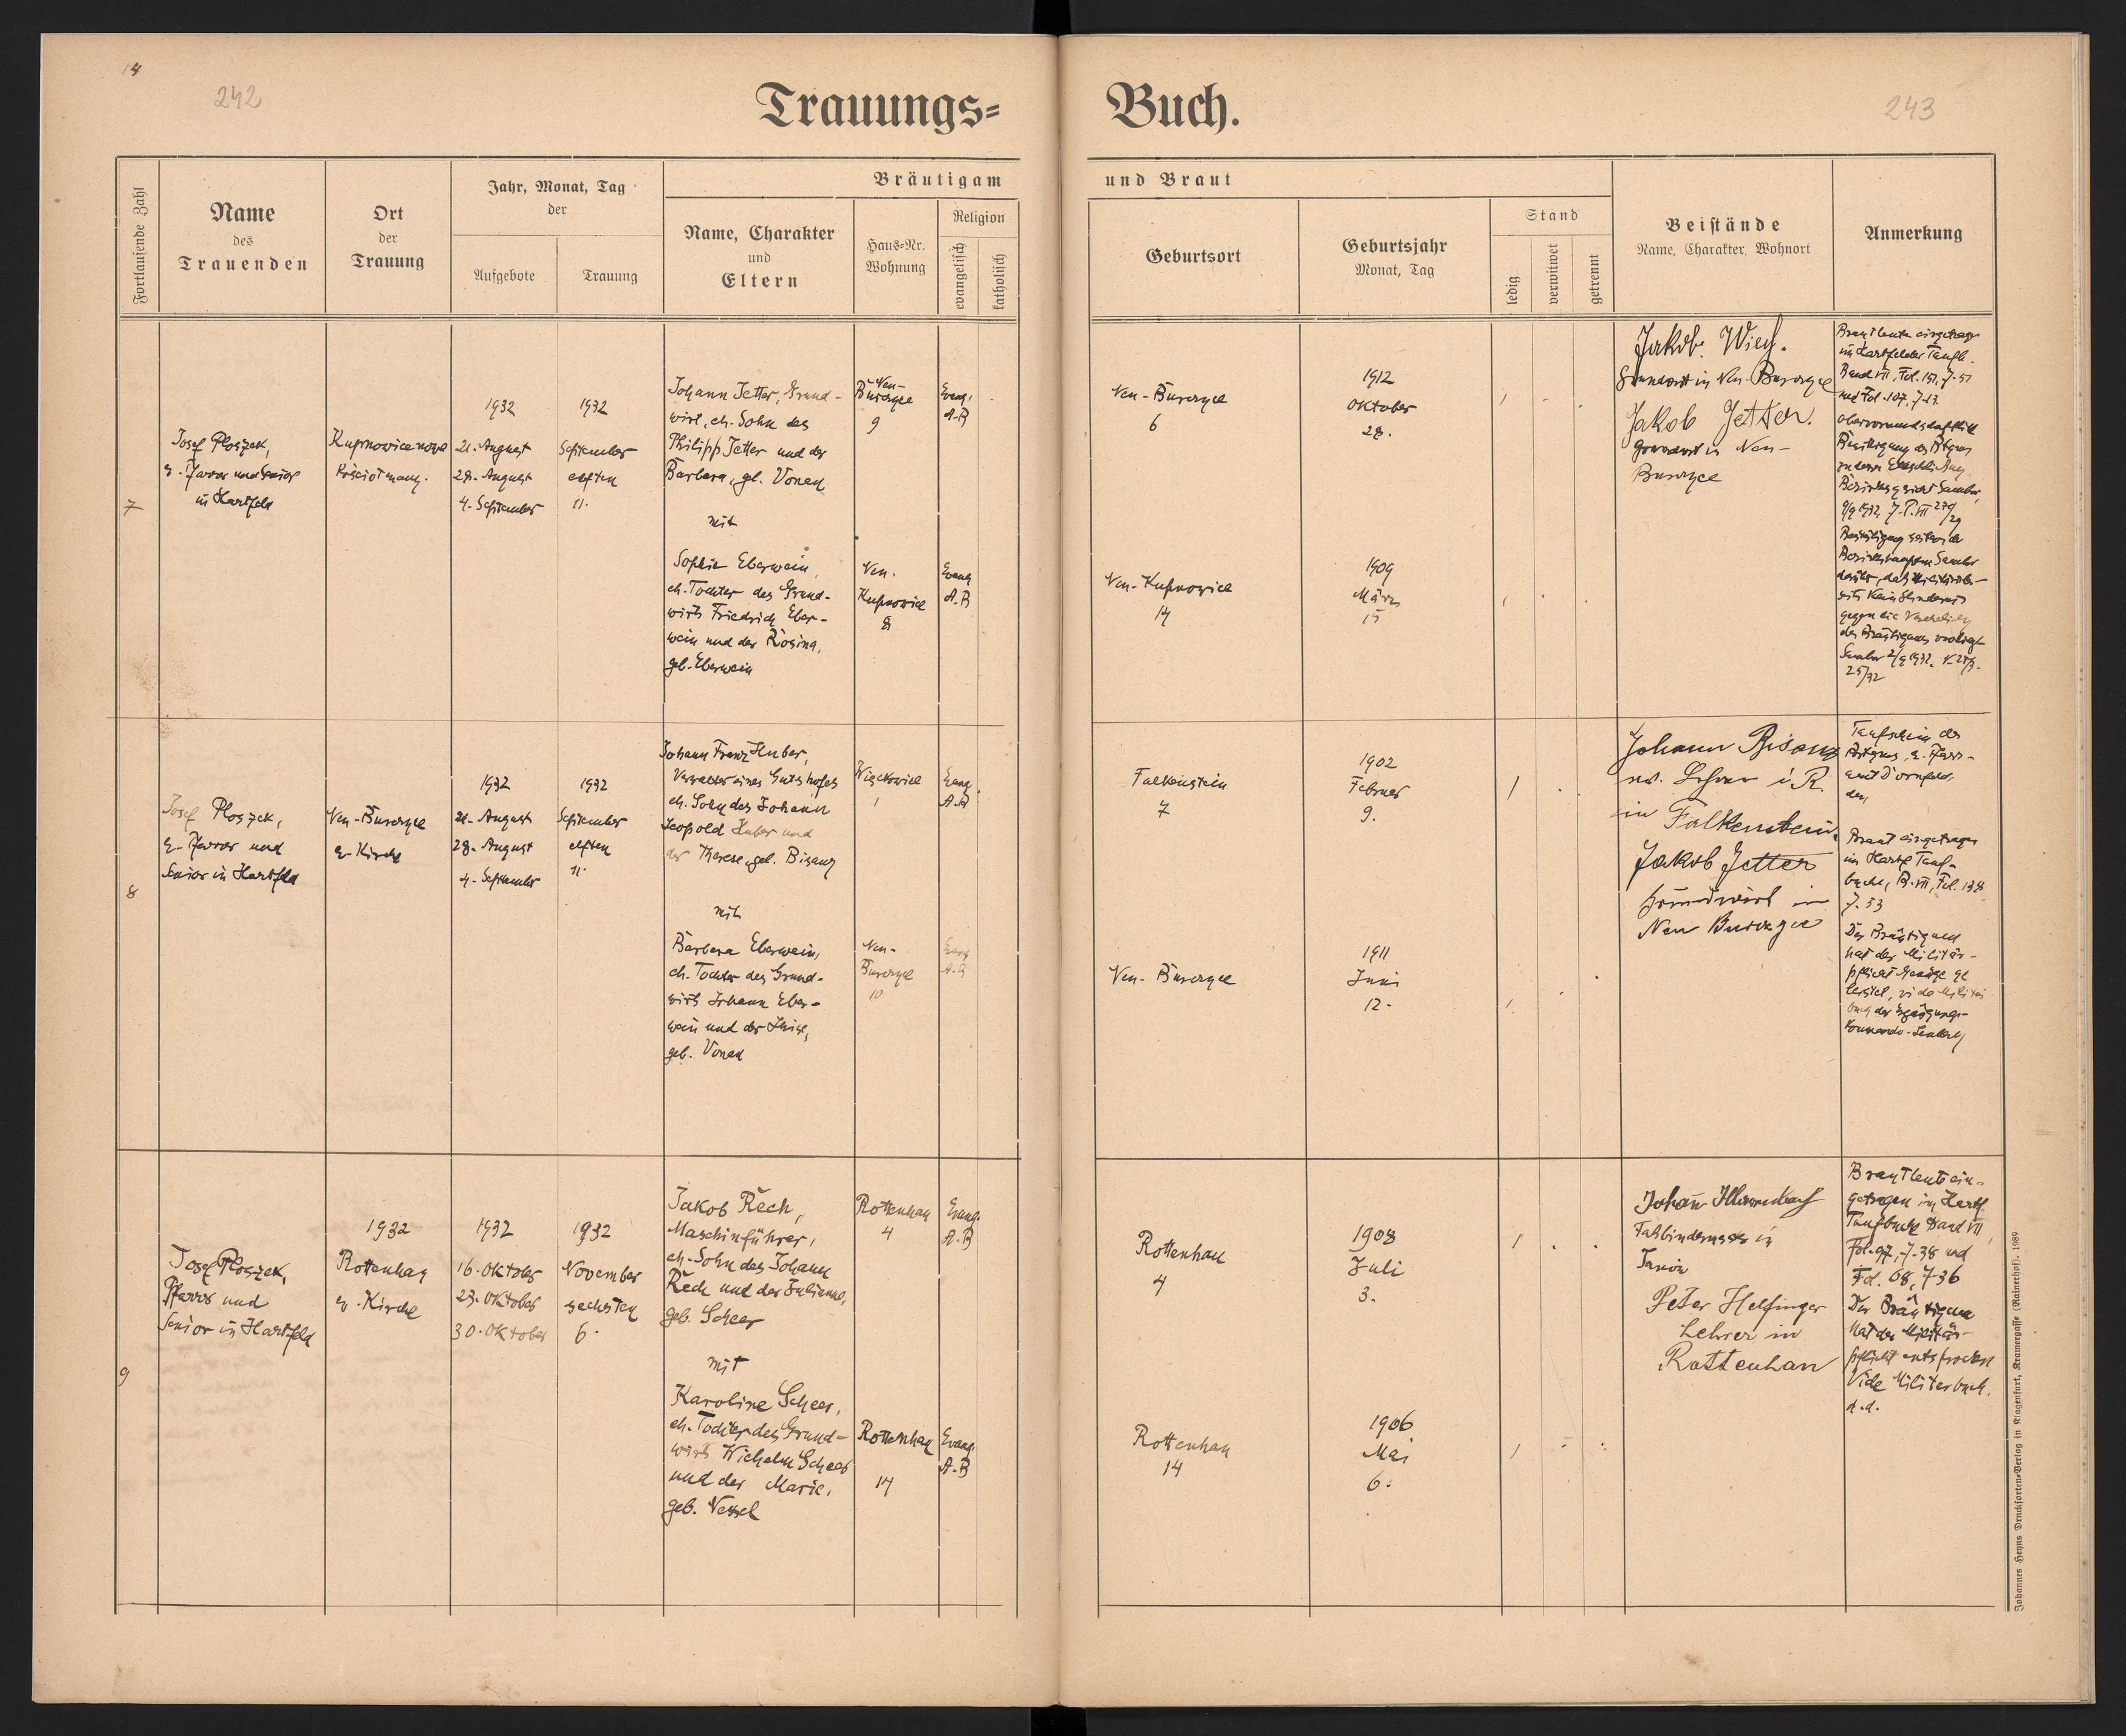 14
242
243
Trauungs= Buch.
Fortlaufende Zahl
Name
des
Trauenden
Ort
der
Trauung
Jahr, Monat, Tag
der
Aufgebote
Trauung
Bräutigam und Braut
Name, Charakter
und
Eltern
Haus=Nr.
Wohnung
Religion
evangelisch
katholisch
Geburtsort
Geburtsjahr
Monat, Tag
Stand
ledig
verwitwet
getrennt
Beistände
Name, Charakter, Wohnort
Anmerkung
7
Josef Ploszek,
e. Pfarrer und Senior
in Hartfeld
Kupnowice nowe
1932
21. August
28. August
4. September
1932
September
elften
11.
Johann Jetter, Grund-
wirt, eh. Sohn des
Philipp Jetter und der
Barbara, gb. Vonau
mit
Sophie Eberwein,
eh. Tochter des Grund-
wirts Friedrich Eber-
wein und der Rosina,
geb. Eberwein
Neu-
Burczyce
9
Evang.
A.B
Neu-
Kupnowice
8
Evang
A.B
Neu-Burczyce
6
1912
Oktober
28.
Neu-Kupnowice
14
1909
März
15
Jakob
Grundwirt in Neu-Burczyce
Jakob Jetter.
Grundwirt in Neu-
Burczyce
Brautleute eingetragen
im Hartfelder Taufb.
Band VII, Fol. 151, Z. 51
und Fol. 107, Z. 13
8
Josef Ploszek,
e. Pfarrer und
Senior in Hartfeld
Neu-Burczyce
e. Kirche
1932
21. August
28. August
4. September
1932
September
elften
11.
Johann Franz Huber,
Verwalter eines Gutshofes
eh. Sohn des Johann
Leopold Huber und
der Therese, geb. Bisanz
mit
Barbara Eberwein,
eh. Tochter des Grund-
wirts Johann Eber-
wein und der
geb. Vonau
Więckowice
1
Evang
A.B
Neu-
Burczyce
10
Evang
A.B
Falkenstein
7
1902
Februar
9.
Neu-Burczyce
1911
Juni
12.
Johann Bisanz
ev. Lehrer i. R.
in Falkenstein.
Jakob Jetter
Grundwirt in
Neu Burczyce
Taufschein des
Btgms, e. Pfarr-
amt Dornfeld,
den
Braut eingetragen
im Hartf. Tauf-
buche, B. VII, Fol. 138
Z. 53
Der Bräutigam
hat der Militär-
pflicht Genüge ge
leistet, vide Militär
9
Josef Ploszek,
Pfarrer und
Senior in Hartfeld
1932
Rottenhan
ev. Kirche
1932
16. Oktober
23. Oktober
30. Oktober
1932
November
sechsten
6.
Jakob Rech,
Maschinführer,
eh. Sohn des Johann
Rech und der Juliane,
geb. Scheer
mit
Karoline Scheer,
eh. Tochter des Grund-
wirts Wilhelm Scheer
und der Marie,
geb. Wessel
Rottenhan
4
Evang.
A.B
Rottenhan
14
Evang.
A.B
Rottenhan
4
1908
Juli
3.
Rottenhan
14
1906
Mai
6.
Johann
Faßbindermeister in
Janow
Peter Helfinger
Lehrer in
Rottenhan
Brautleute ein-
getragen im Hartf.
Taufbuche Band VII
Fol. 97, Z. 38 und
Fol. 68, Z 36
Der Bräutigam
hat der Militär-
pflicht entsprochen
Vide Militärbuch.
d.d.
Johannes Heyns Drucksorten=Verlag in Klagenfurt, Kramergasse (Rainerhof). 1989